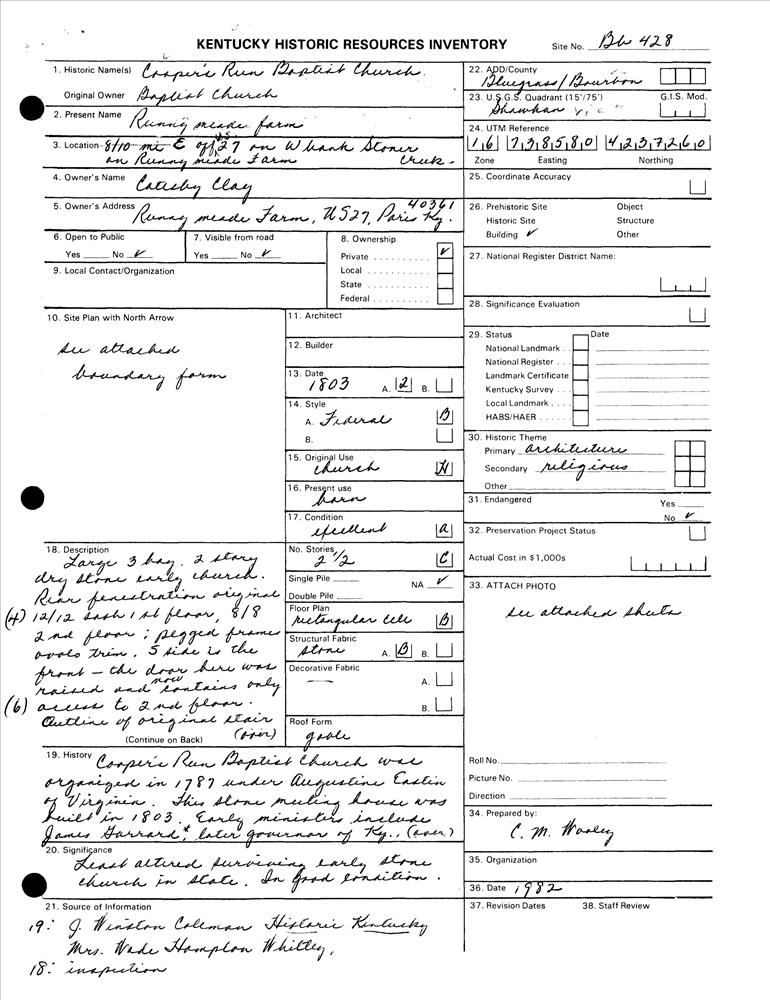 KENTUCKY HISTORIC RESOURCES INVENTORY
Site No. Bb 428
1. Historic Name(s) Cooper's Run Baptist Church
Original Owner Baptist Church
2. Present Name Runnymeade farm
3. Location 8/10 mi E off US 27 on W bank Stoner
on Runnymeade Farm Creek.
4. Owner's Name Catesby Clay
5. Owner's Address Runnymeade Farm, US27, Paris Ky. 40361
6. Open to Public
Yes No ✓
7. Visible from road
Yes No ✓
8. Ownership
Private ✓
Local
State
Federal
9. Local Contact/Organization
10. Site Plan with North Arrow
see attached
boundary form
11. Architect
12. Builder
13. Date
1803 A. 2 B.
14. Style
A. Federal B
B.
15. Original Use
church N
16. Present use
barn
17. Condition
excellent A
18. Description
Large 3 bay, 2 story
dry stone early church.
Rear fenestration original
(4) 12/12 sash 1st floor, 8/8
2nd floor; pegged frames
ovolo trim. S side is the
front - the door here was
raised and now contains only
(6) access to 2nd floor.
Outline of original stair
(over)
(Continue on Back)
No. Stories
2 1/2 C
Single Pile NA ✓
Double Pile
Floor Plan
rectangular cell B
Structural Fabric
stone A. B B.
Decorative Fabric
— A.
B.
Roof Form
gable
19. History Cooper's Run Baptist Church was
organized in 1787 under Augustine Eastin
of Virginia. This stone meeting house was
built in 1803. Early ministers include
James Garrard*, later governor of Ky., (over)
20. Significance
Least altered surviving early stone
church in state. In good condition.
21. Source of Information
19: J. Winston Coleman Historic Kentucky
Mrs. Wade Hampton Whitley,
18: inspection
22. ADD/County
Bluegrass/Bourbon
23. U.S.G.S. Quadrant (15'/75') G.I.S. Mod.
Shawhan
24. UTM Reference
16 738580 4237260
Zone Easting Northing
25. Coordinate Accuracy
26. Prehistoric Site Object
Historic Site Structure
Building ✓ Other
27. National Register District Name:
28. Significance Evaluation
29. Status Date
National Landmark
National Register
Landmark Certificate
Kentucky Survey
Local Landmark
HABS/HAER
30. Historic Theme
Primary architecture
Secondary religious
Other
31. Endangered Yes
No ✓
32. Preservation Project Status
Actual Cost in $1,000s
33. ATTACH PHOTO
see attached sheets
Roll No.
Picture No.
Direction
34. Prepared by:
C. M. Wooley
35. Organization
36. Date 1982
37. Revision Dates 38. Staff Review